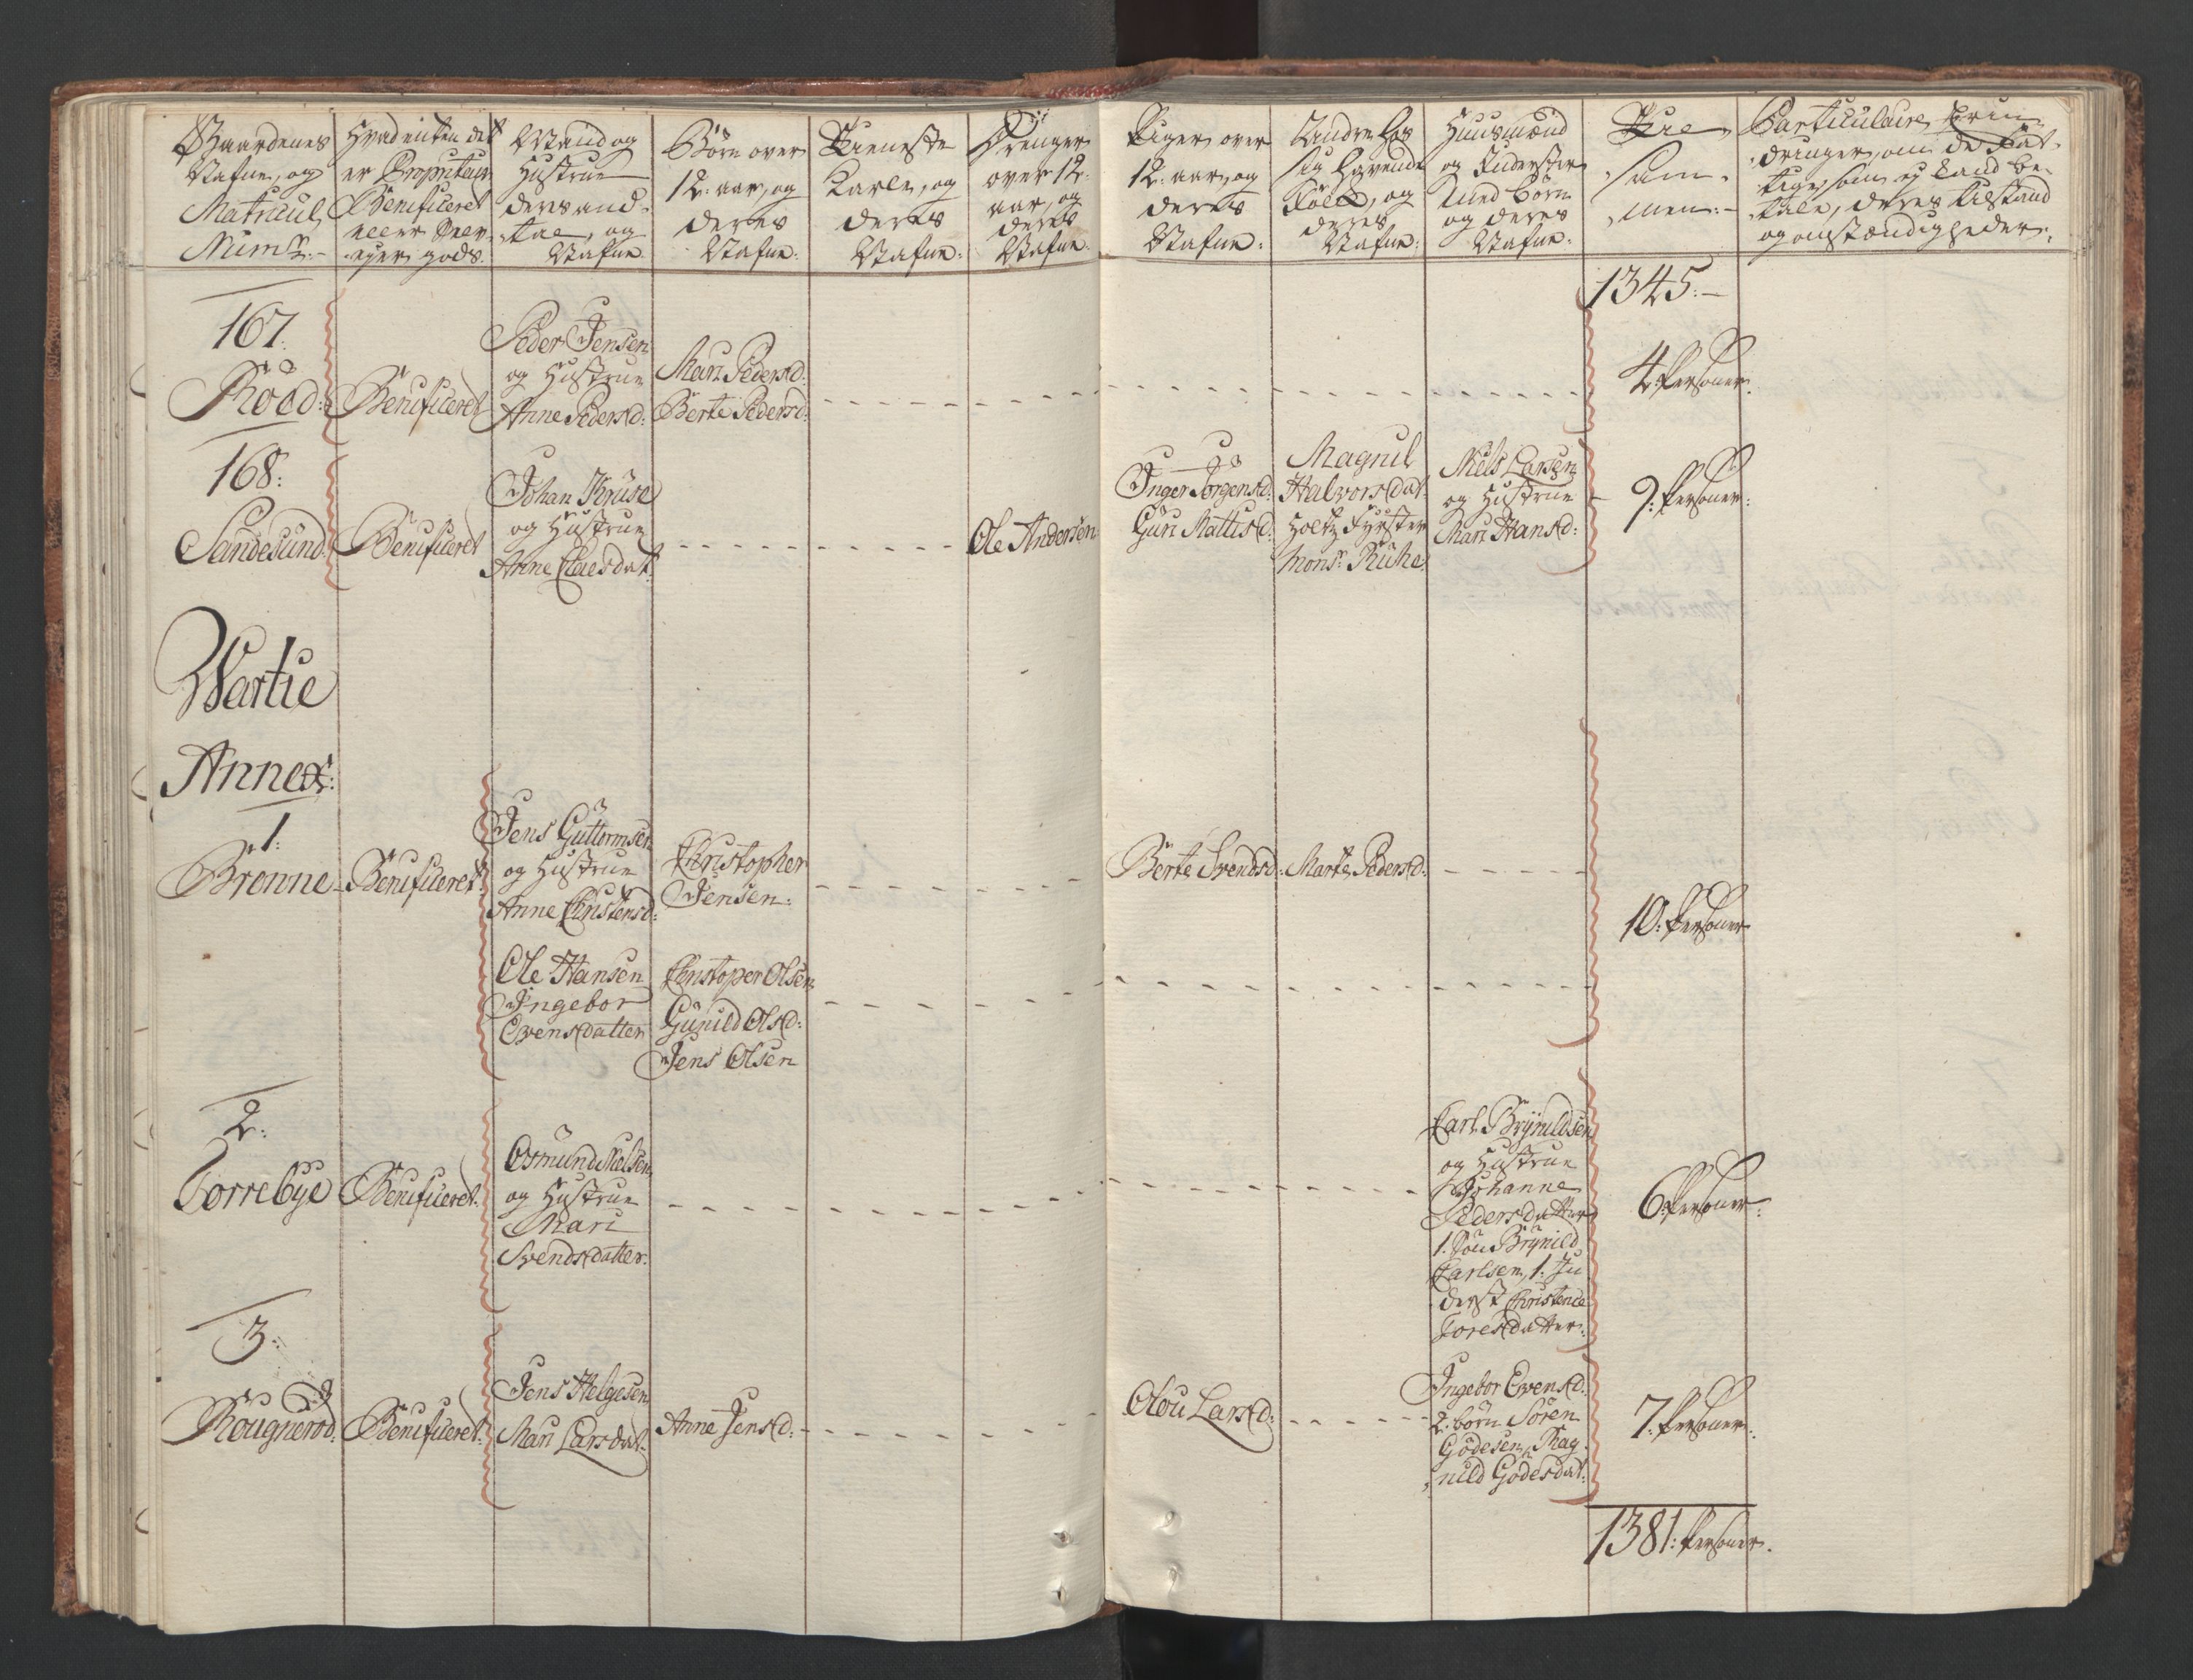 Gaardenes
Nafne, og
Matricul
Numr:
Hvad enten det
er Proprietair
Benificeret
eller Selv-
eyer gods.
Mand og
Hustrue
deres and-
tal, og
Nafne
Børn over
12: aar, og
deres
Nafne:
Tieneste
Karle, og
deres
Nafne:
Drenger
over 12:
aar, og
deres
Nafne
Piger over
12: aar, og
deres
Nafne:
Andre hos
sig havende
Folk, og
deres
Nafne:
Huusmænd
og Inderster
med børn
og deres
Nafne:
Til-
sam-
men:-
Particulaire Erin-
dringer, om de Fat-
tige, som ej kand be-
tale, deres tilstand
og omstændigheder:
1345:-
167.
Röed:
Benificeret
Peder Jensen
og Hustrue
Anne Pedersd:
Mari Pedersd:
Berte Pedersd:
4: Personer.
168:
Sandesund:
Benificeret
Johan Kruse
og Hustrue
Anne Claesdat:
Ole Andersen
Inger Jørgensd:
Guri Mattisd:
Magnil
Halvorsdat:
Holtz Fyrster
Monsr: Ruhe.
Niels Larsen
og Hustrue
Mari Hansd:
9: Personer:
Wartie
Annex:
1:
Brønne
Benificeret
Jens Guttormsen
og Hustrue
Anne Christensd:
Christopher
Jensen:
Berte Svendsd:
Marte Pedersd:
10: Personer
Ole Hansen
Ingebor
Evensdatter
Christoper Olsen
Gunild Olsd:
Jens Olsen
2:
Torrebye
Benificeret:
Osmund Nielsen
og Hustrue
Mari
Svendsdatter:
Carl Brynildsen
og Hustrue
Johanne
Pedersdatter
1. Søn Brynild
Carlsen, 1. In-
derst Christence
Toresdatter:
6: Personer:
3:
Rougnerød:
Benificeret:
Jens Helgesen
Mari Larsdat:
Anne Jensd:
Olou Larsd:
Ingebor Evensd:
2. børn Sören
Gödesen, Rag-
nild Gödesdat:
7: Personer:
1381: Personer.